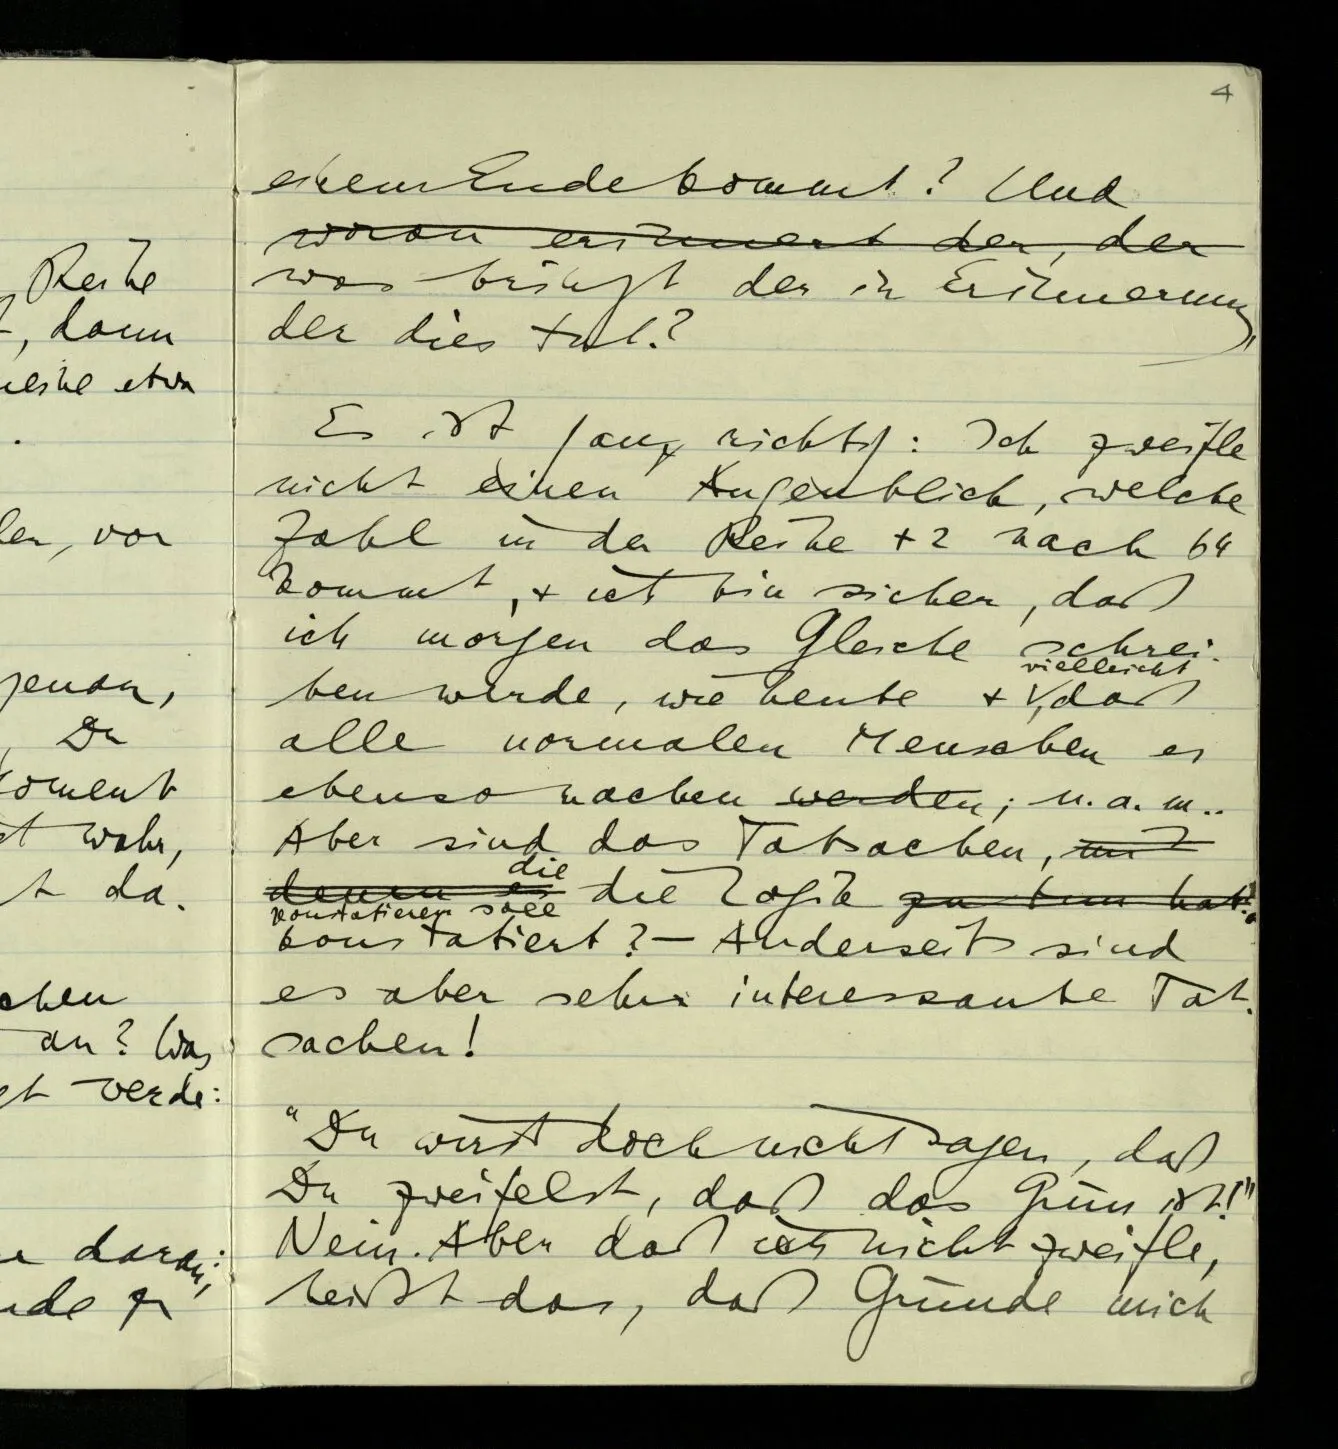 4
einem Ende kommt? Und
woran erinnert der, der
was bringt der in Erinnerung,
der dies tut?
Es ist ganz richtig: Ich zweifle
nicht einen Augenblick, welche
Zahl in der Reihe +2 nach 64
kommt, + ich bin sicher, daß
ich morgen das Gleiche schrei-
vielleicht
ben werde, wie heute + , daß
alle normalen Menschen es
ebenso machen werden; u.a.m..
Aber sind das Tatsachen, mit
die
denen es die Logik zu tun hat?
konstatieren soll
konstatiert? — Anderseits sind
es aber sehr interessante Tat-
sachen!
"Du wirst doch nicht sagen, daß
Du zweifelst, daß das Grün ist!"
Nein. Aber daß ich nicht zweifle,
heißt das, daß Gründe mich
Reihe
, dann
etwa
.
, vor
genau,
, Du
wahr,
t da.
an? Was
werde:
daran;